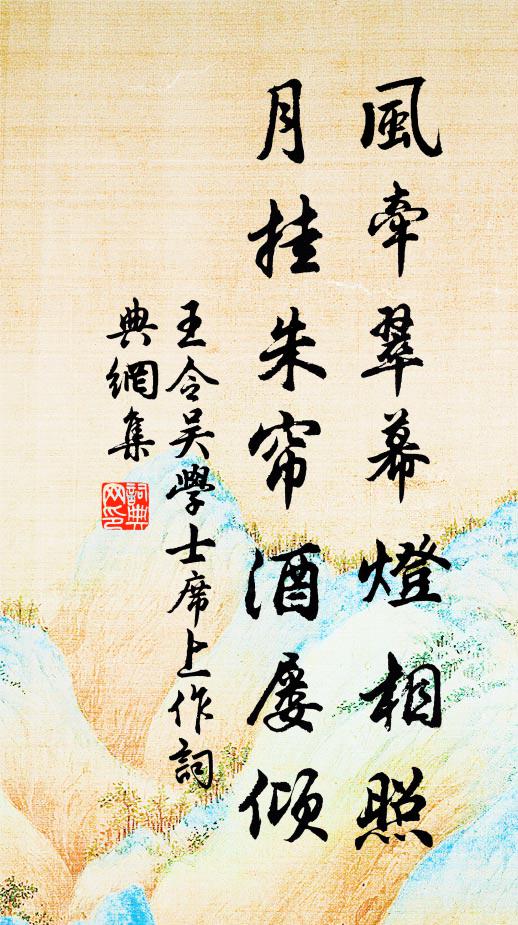 風牽翠幕燈相照
月挂朱帘酒屡傾
王令吴學士席上作詞
典網集
詞典
网印